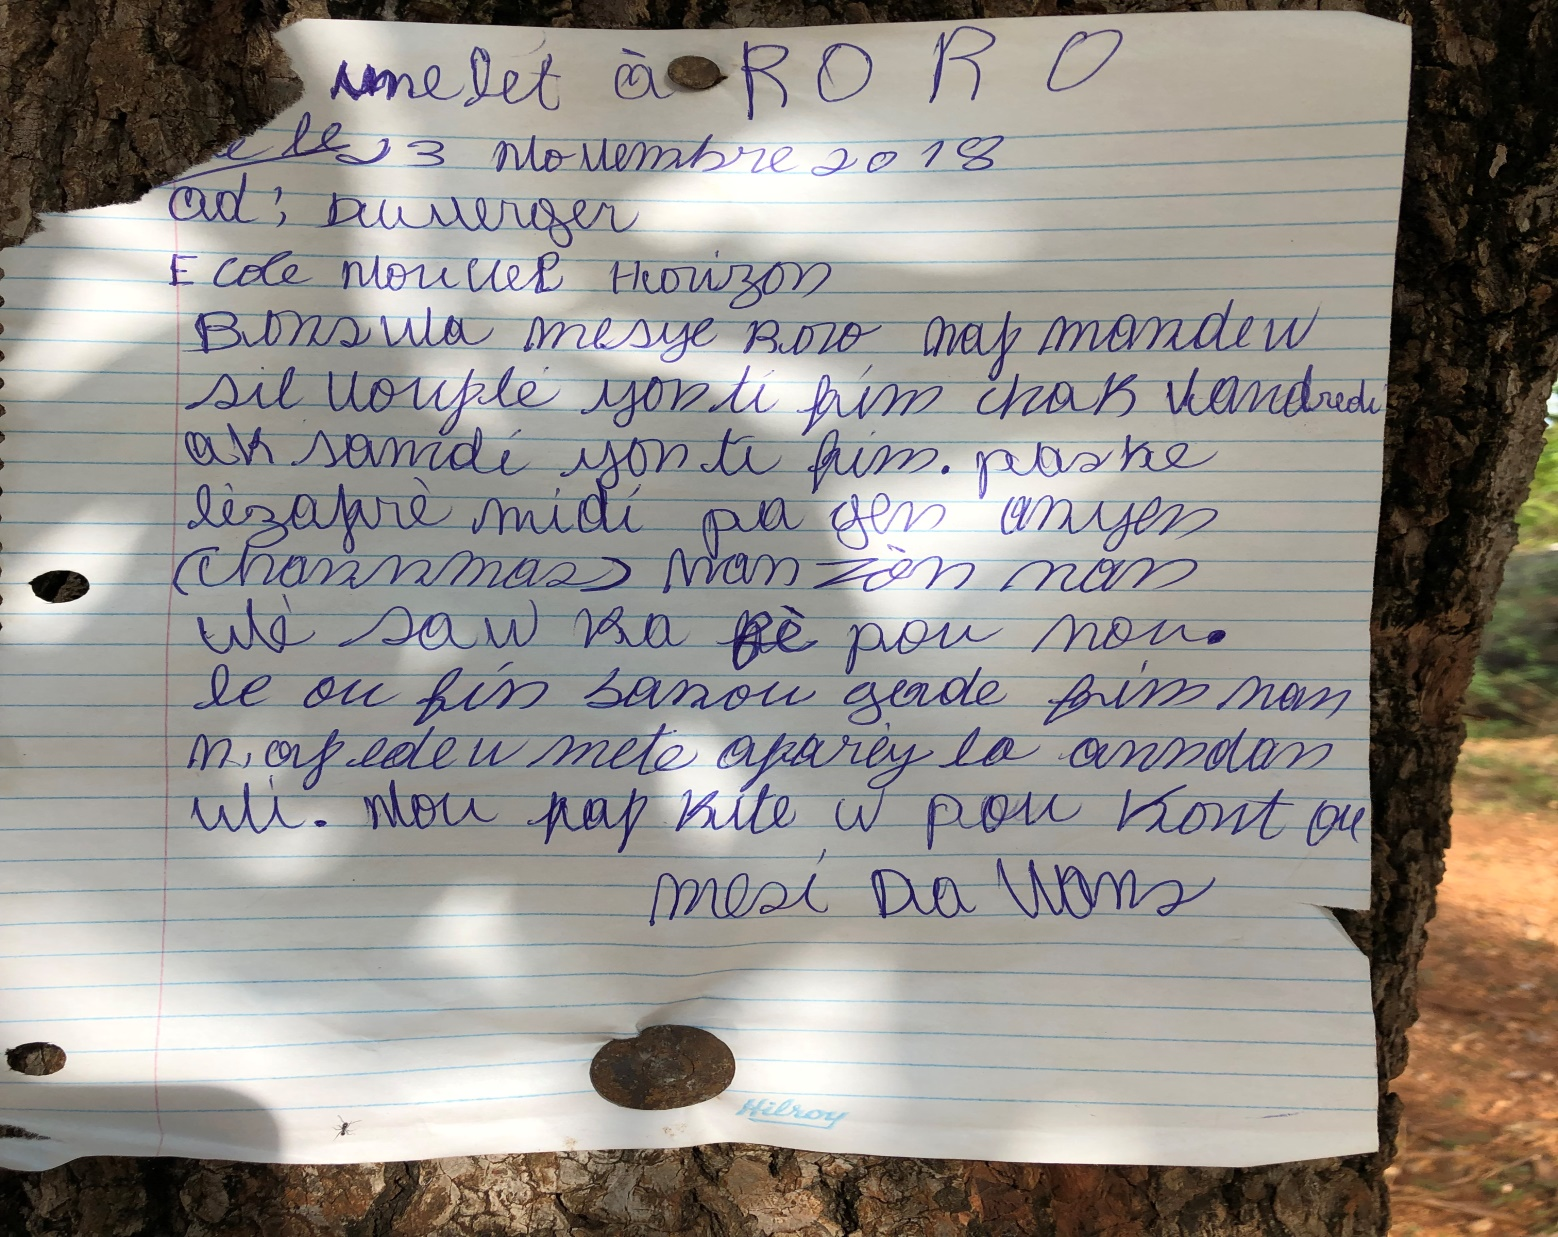 une let à RORO
le 23 Novembre 2018
ad; Duverger
Ecole Nouvel Horizon
Bonswa mesye Roro nap mandew
sil vouplè yon ti fim chak vandredi
ak samdi yon ti fim. paske
lèzaprè midi pa gen anyen
(Chanmas) nan zòn nan
wè saw ka fè pou nou.
le ou fin banou gade fim nan
n,ap edew mete aparèy la anndan
wi. Nou pap kite w pou kont ou
mesi Da Wons
Hilroy